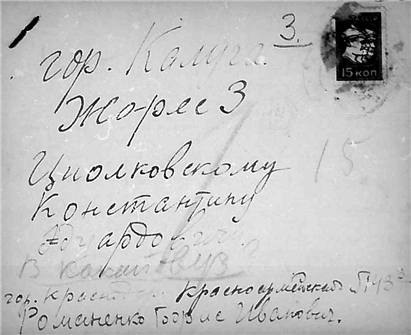 3.
гор. Калуга
Жорес 3
15 КОП
Циолковскому
15
Константину
Эдуардовичу.
В
гор. Краснодар. Красноармейская №43
Романенко Борис Иванович.